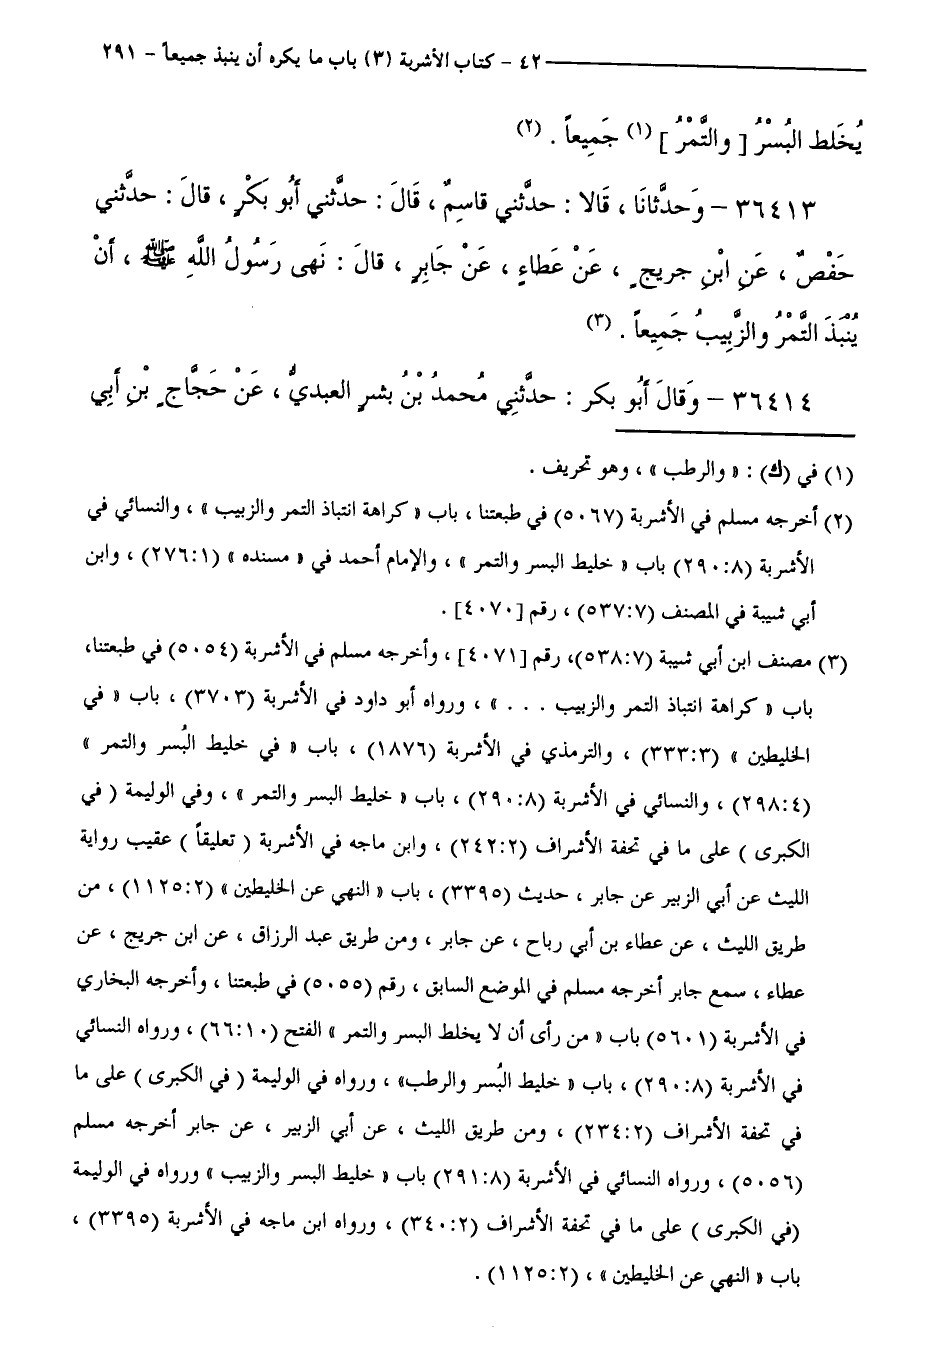 ٤٢ - كتاب الأشربة (٣) باب ما يكره أن ينبذ جميعاً - ٢٩١
يُخَلط البُسْرُ [ والتَّمْرُ ] (١) جَمِيعاً . (٢)
٣٦٤١٣ - وَحدَّثانَا ، قَالا : حدَّثني قاسِمٌ ، قَالَ : حدَّثني أَبُو بَكْرٍ ، قالَ : حدَّثني
حَفْصٌ ، عَنِ ابْنِ جريجٍ ، عَنْ عَطاءٍ ، عَنْ جَابِرٍ ، قالَ : نَهى رَسُولُ اللَّهِ ﷺ ، أَنْ
يُنْبَذَ التَّمْرُ والزَّبِيبُ جَمِيعاً . (٣)
٣٦٤١٤ - وَقالَ أَبُو بكر : حدَّثنِي مُحمدُ بْنُ بشرٍ العبديُّ ، عَنْ حَجَّاجٍ بْنِ أَبِي
(١) في (ك) : « والرطب » ، وهو تحريف .
(٢) أخرجه مسلم في الأشربة (٥٠٦٧) في طبعتنا ، باب « كراهة انتباذ التمر والزبيب » ، والنسائي في
الأشربة (٢٩٠:٨) باب « خليط البسر والتمر » ، والإمام أحمد في « مسنده » (٢٧٦:١) ، وابن
أبي شيبة في المصنف (٥٣٧:٧) ، رقم [٤٠٧٠] .
(٣) مصنف ابن أبي شيبة (٥٣٨:٧)، رقم [٤٠٧١] ، وأخرجه مسلم في الأشربة (٥٠٥٤) في طبعتنا،
باب « كراهة انتباذ التمر والزبيب . . . » ، ورواه أبو داود في الأشربة (٣٧٠٣) ، باب « في
الخليطين » (٣٣٣:٣) ، والترمذي في الأشربة (١٨٧٦) ، باب « في خليط البُسر والتمر »
(٢٩٨:٤) ، والنسائي في الأشربة (٢٩٠:٨) ، باب « خليط البسر والتمر » ، وفي الوليمة ( في
الكبرى ) على ما في تحفة الأشراف (٢٤٢:٢) ، وابن ماجه في الأشربة ( تعليقاً ) عقيب رواية
الليث عن أبي الزبير عن جابر ، حديث (٣٣٩٥) ، باب « النهي عن الخليطين » (١١٢٥:٢) ، من
طريق الليث ، عن عطاء بن أبي رباح ، عن جابر ، ومن طريق عبد الرزاق ، عن ابن جريج ، عن
عطاء ، سمع جابر أخرجه مسلم في الموضع السابق ، رقم (٥٠٥٥) في طبعتنا ، وأخرجه البخاري
في الأشربة (٥٦٠١) باب « من رأى أن لا يخلط البسر والتمر » الفتح (٦٦:١٠) ، ورواه النسائي
في الأشربة (٢٩٠:٨) ، باب « خليط البُسر والرطب» ، ورواه في الوليمة ( في الكبرى ) على ما
في تحفة الأشراف (٢٣٤:٢) ، ومن طريق الليث ، عن أبي الزبير ، عن جابر أخرجه مسلم
(٥٠٥٦) ، ورواه النسائي في الأشربة (٢٩١:٨) باب « خليط البسر والزبيب » ورواه في الوليمة
(في الكبرى ) على ما في تحفة الأشراف (٣٤٠:٢) ، ورواه ابن ماجه في الأشربة (٣٣٩٥) ،
باب « النهي عن الخليطين » ، (١١٢٥:٢) .